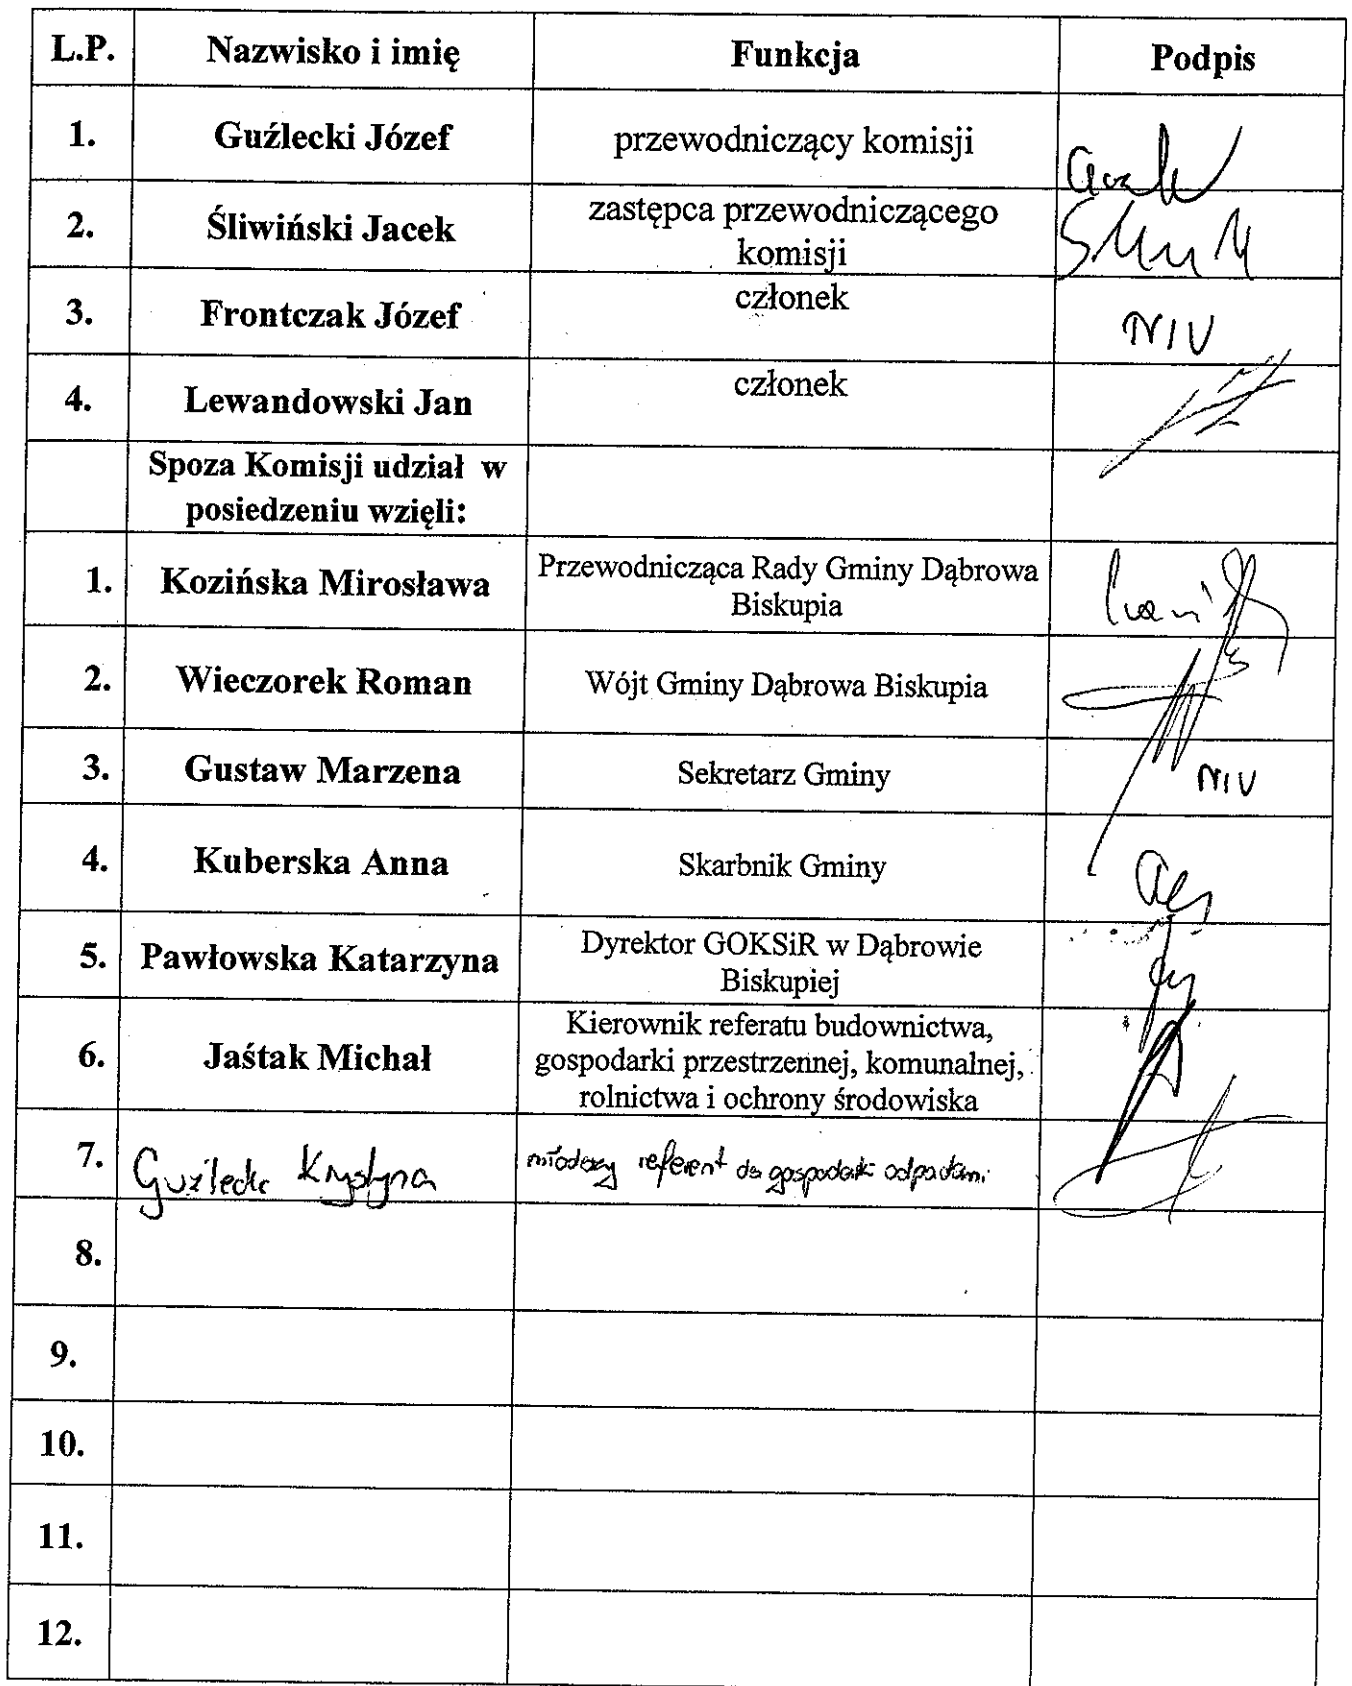 L.P. Nazwisko i imię Funkcja Podpis
1. Guźlecki Józef przewodniczący komisji
2. Śliwiński Jacek zastępca przewodniczącego
komisji
3. Frontczak Józef członek
4. Lewandowski Jan członek
Spoza Komisji udział w
posiedzeniu wzięli:
1. Kozińska Mirosława Przewodnicząca Rady Gminy Dąbrowa
Biskupia
2. Wieczorek Roman Wójt Gminy Dąbrowa Biskupia
3. Gustaw Marzena Sekretarz Gminy
4. Kuberska Anna Skarbnik Gminy
5. Pawłowska Katarzyna Dyrektor GOKSiR w Dąbrowie
Biskupiej
6. Jaśtak Michał Kierownik referatu budownictwa,
gospodarki przestrzennej, komunalnej,
rolnictwa i ochrony środowiska
7. Krystyna młodszy referent ds gospodarki odpadami
8.
9.
10.
11.
12.